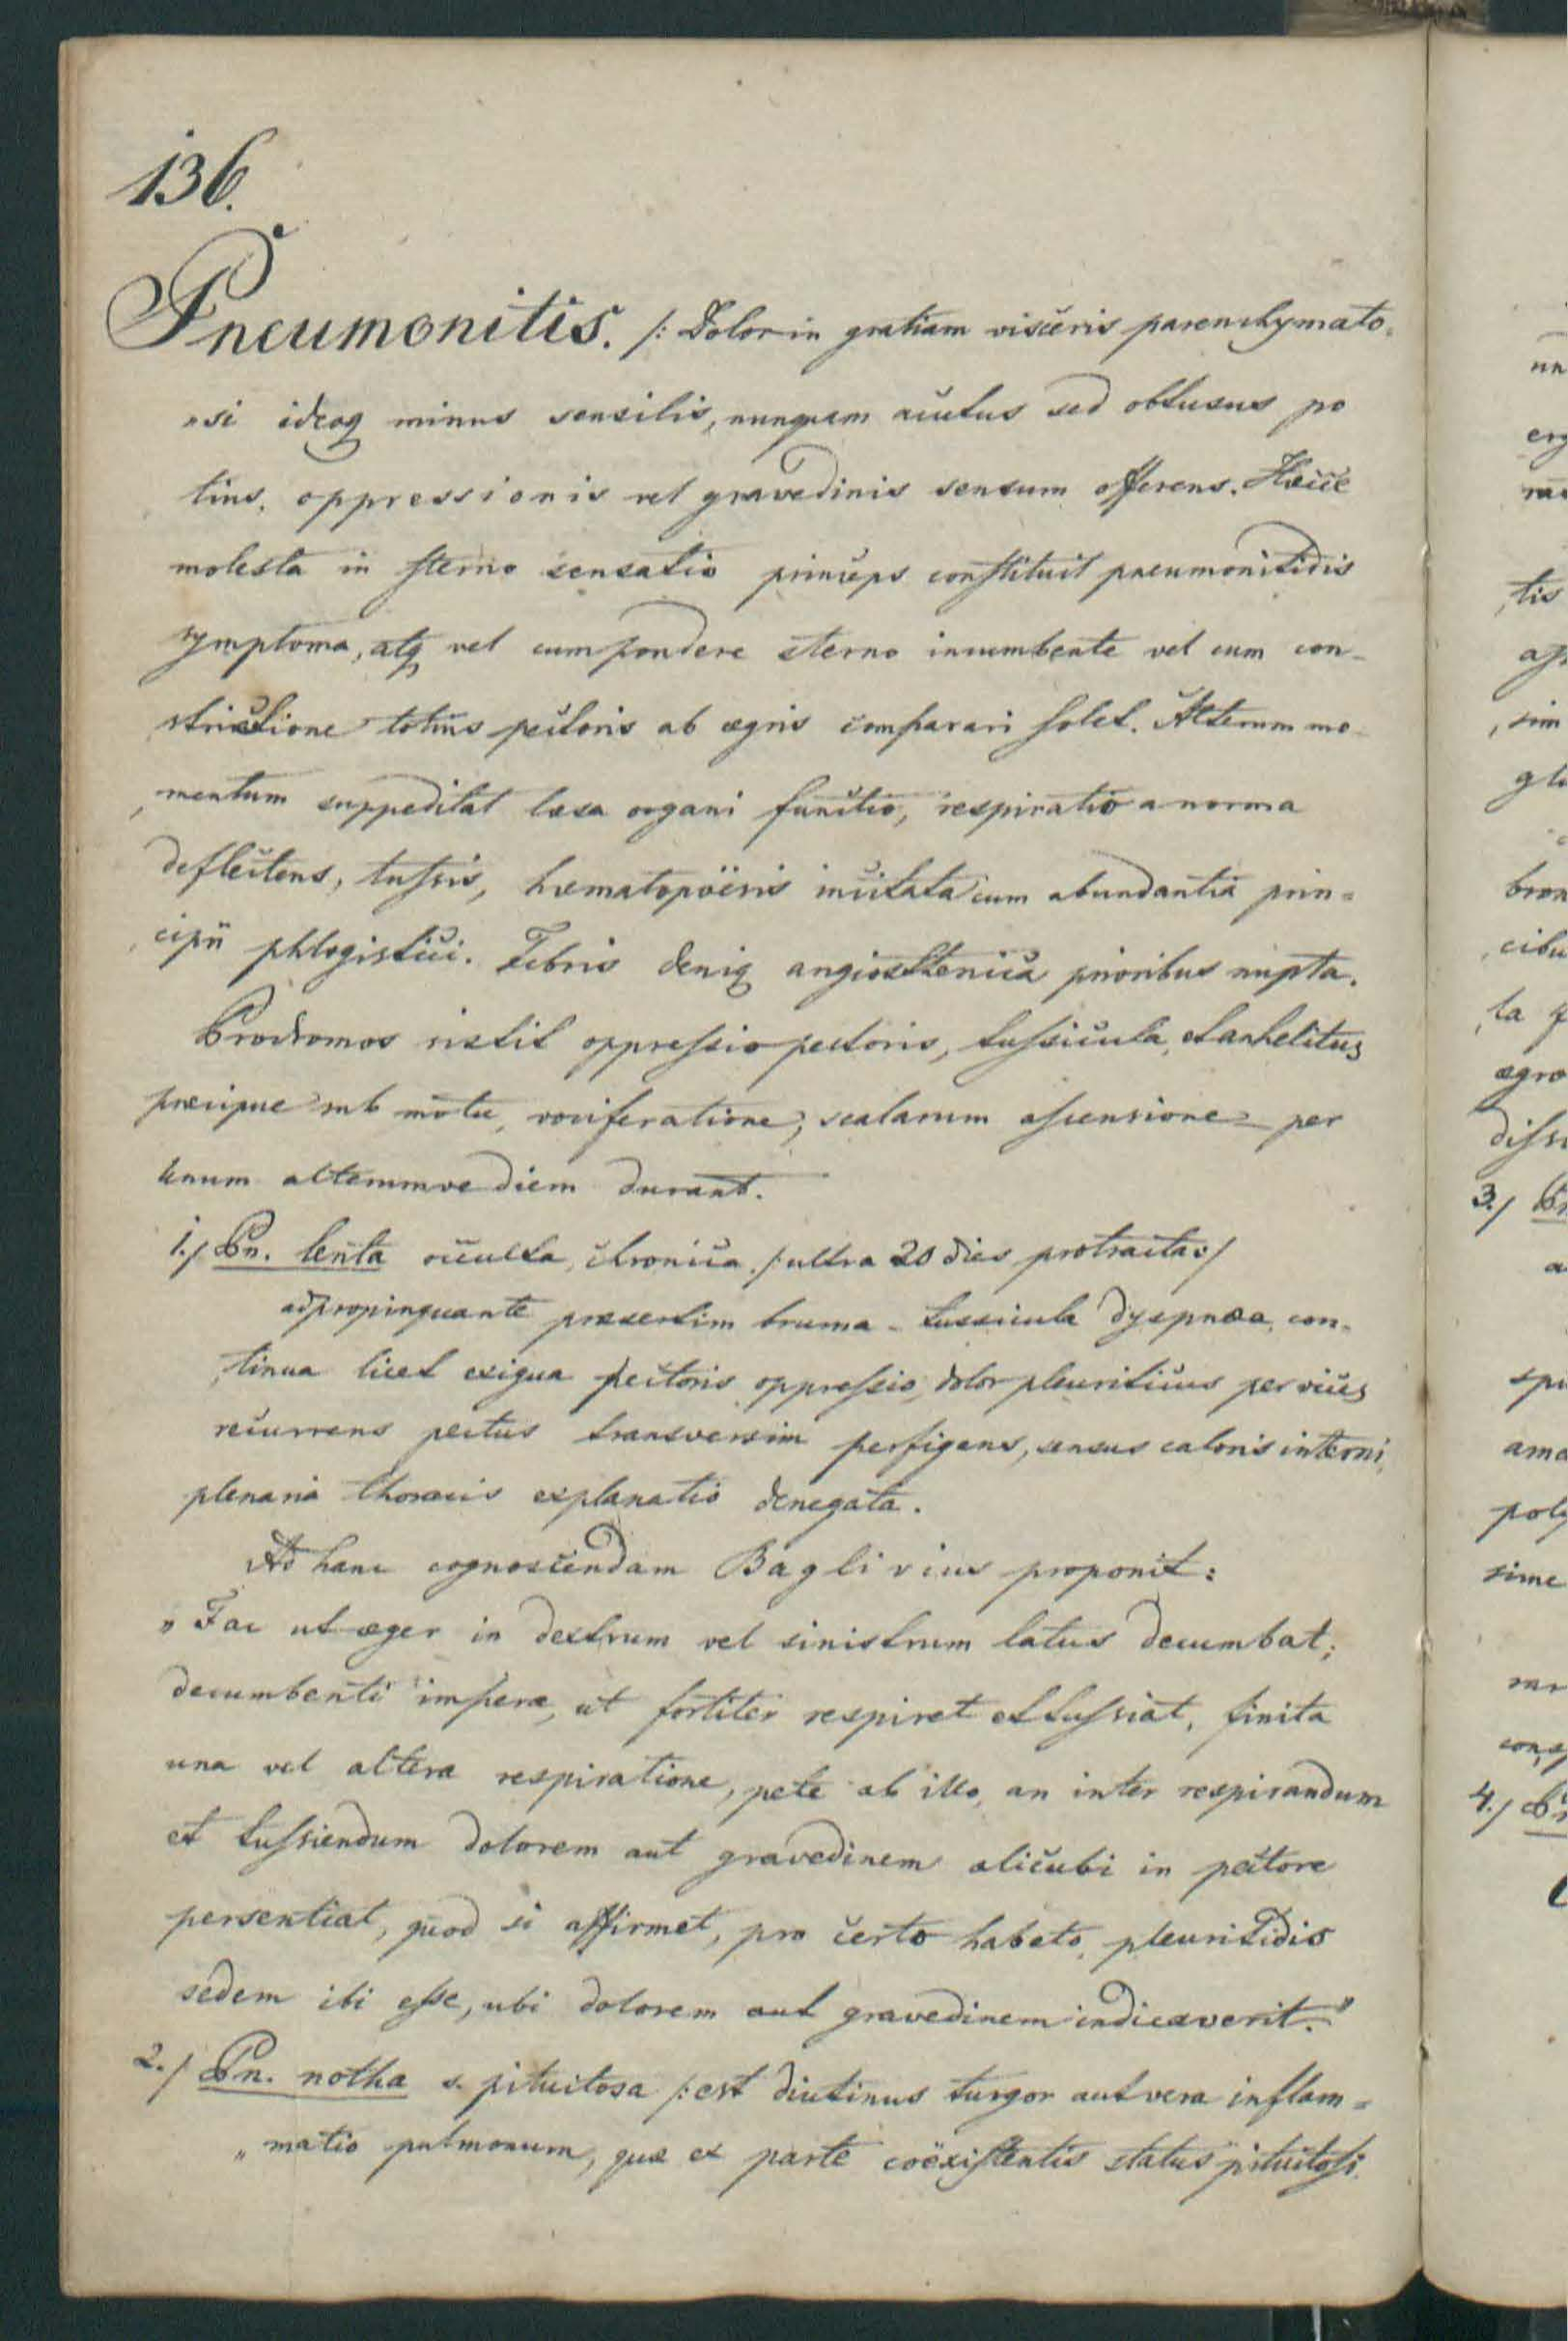 136.
Pneumonitis. /: Dolor in gratiam visceris parenchymato-
„si ideoq minus sensilis, nunquam acutus sed obtusus po
tius, oppressionis vel gravedinis sensum offerens. Hæcce
molesta in sterno sensatio princeps constituit pneumonitidis
symptoma, atq vel cum pondere sterno incumbente vel cum con-
strictione totius pectoris ab ægris comparari solet. Alterum mo-
mentum suppeditat læsa organi functio, respiratio a norma
deflectens, tussis, hæmatopöesis incitata cum abundantia prin=
cipii phlogistici. Febris deniq angiosthenica prioribus nupta.
Prodromos sistit oppressio pectoris, tussicula, et anhelitus
præcipue sub motu, vociferatione, scalarum ascensione per
unum alterumve diem durant.
1./ Pn. lenta occulta, chronica /: ultra 20 dies protracta :/
adpropinquante præsertim bruma - tussicula dyspnœa, con-
tinua licet exigua pectoris oppressio, dolor pleuriticus per vices
recurrens pectus transversim perfigens, sensus caloris interni,
plenaria thoracis explanatio denegata.
Ad hanc cognoscendam Baglivius proponit:
„Fac ut æger in dextrum vel sinistrum latus decumbat;
decumbenti impera, ut fortiter respiret et tussiat, finita
una vel altera respiratione, pete ab illo, an inter respirandum
et tussiendum dolorem aut gravedinem alicubi in pectore
persentiat, quod si affirmet, pro certo habeto, pleuritidis
sedem ibi esse, ubi dolorem aut gravedinem indicaverit."
2./ Pn. notha s. pituitosa /: est diutinus turgor aut vera inflam=
„matio pulmonum, quæ ex parte coëxistentis status pituitosi